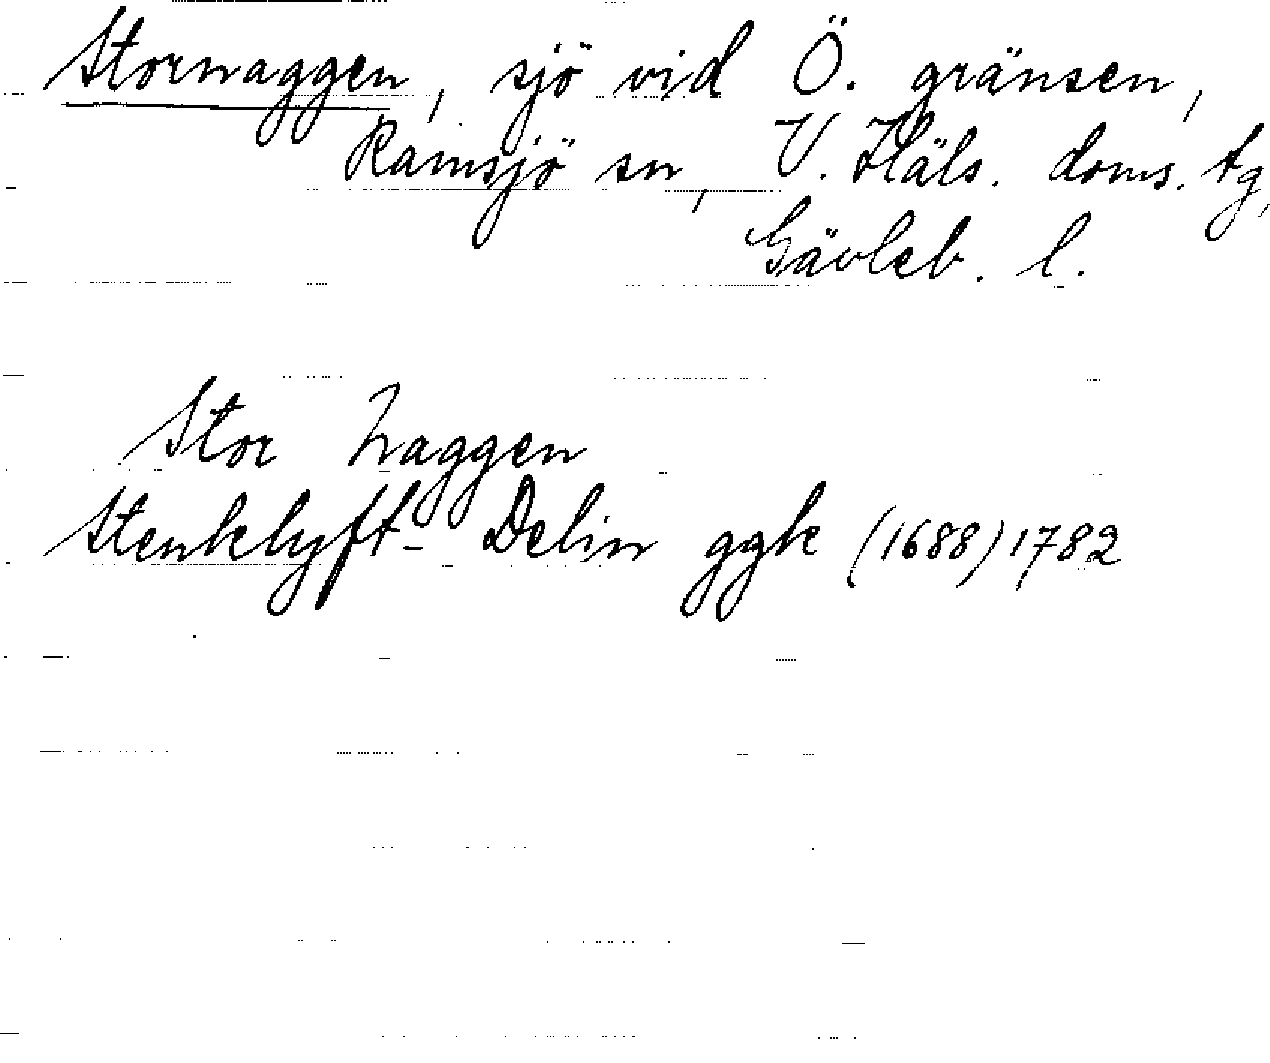 Stornaggen, sjö vid Ö. gränsen,
Ramsjö sn, V. Häls. doms. tg,
Gävleb. l.
Stor Naggen
Stenklyft- Delin ggk (1688) 1782